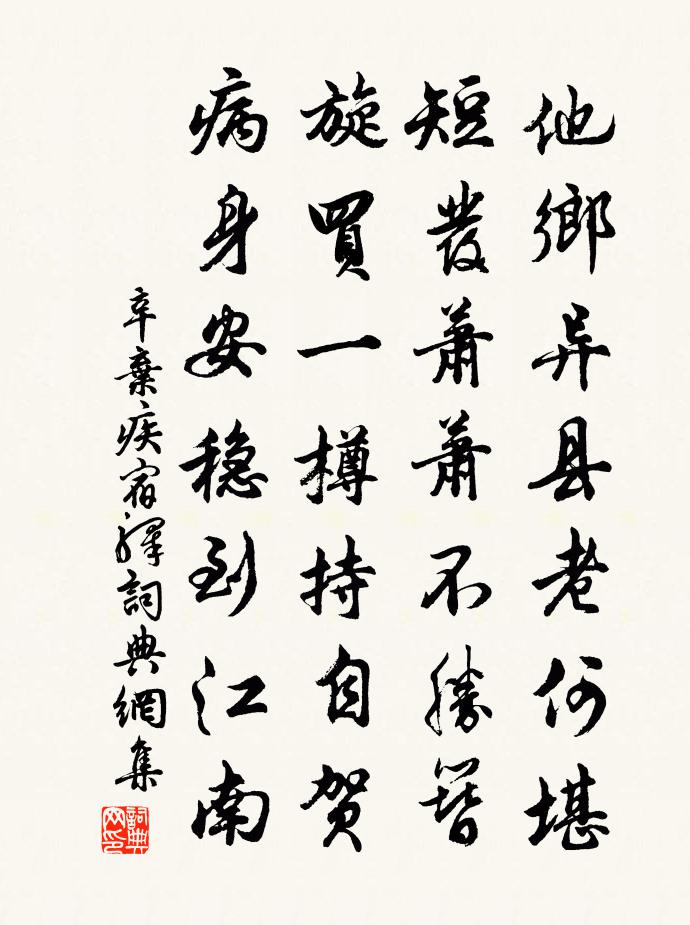 他鄉异县老何堪
短發蕭蕭不勝簪
旋買一樽持自賀
病身安稳到江南
辛棄疾宿驛詞典網集
詞典
网印